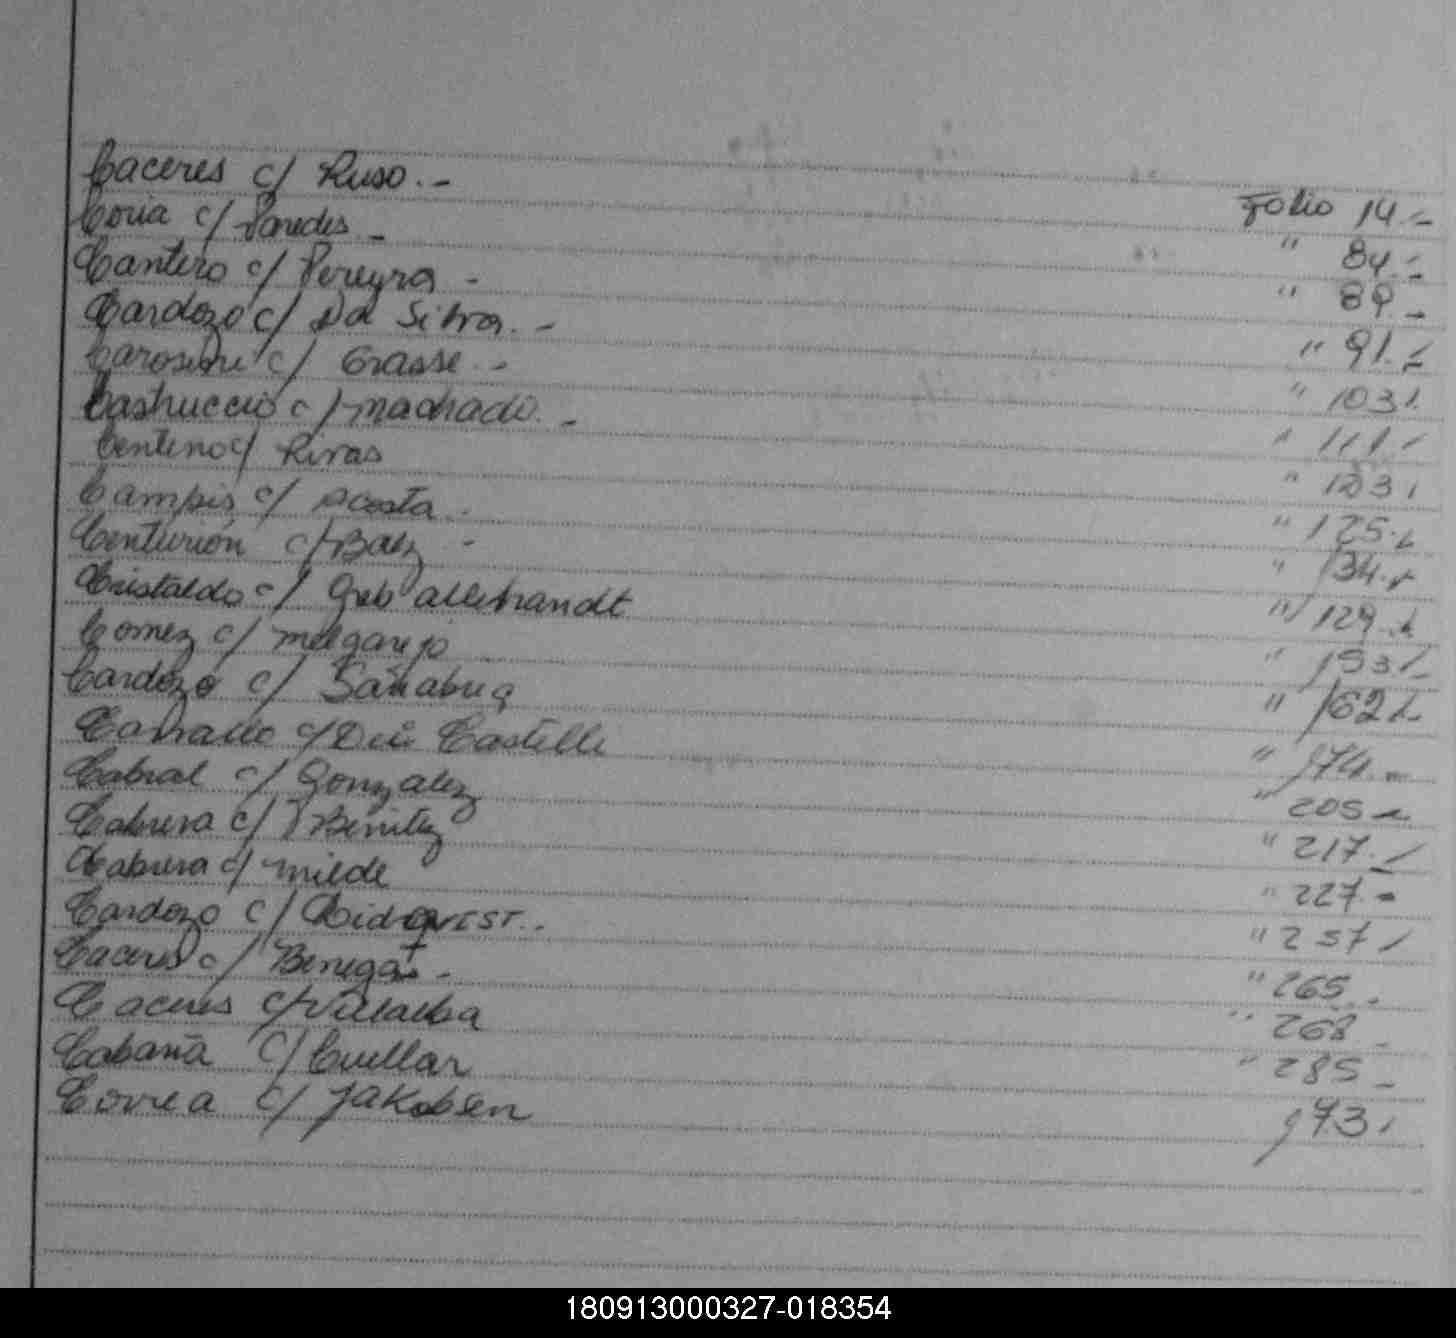 Caceres c/ Ruso.- Folio 14.-
Coria c/ Paredes - " 84.-
Cantero c/ Pereyra - " 89.-
Cardozo c/ Da Silva.- " 91.-
c/ Grasse.- " 103.
Castruccio c/ Machado.- " 111.-
Centeno c/ Rivas " 123.
Campis c/ Acosta.- " 125.-
Centurión c/ Baez - " 134.-
Cristaldo c/ allebrandt " 129.-
Comez c/ Melgarejo " 153.-
Cardozo c/ Sanabria " 162.-
c/ Castelli " 174.-
Cabral c/ Gonzalez " 205.-
Cabrera c/ Benitez " 217.-
Cabrera c/ Milde " 227.-
Cardozo c/ " 257.-
Caceres c/ Benegas.- " 265.-
Caceres c/ Villalba " 268.-
Cabaña c/ Cuellar " 285.-
Correa c/ Jakobsen 173.
180913000327-018354